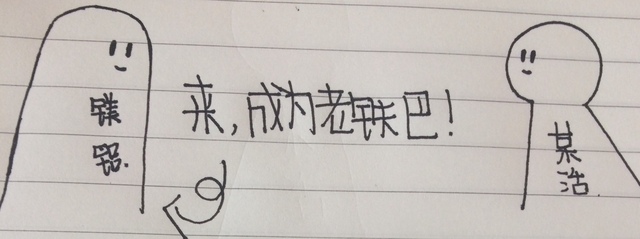 来,成为老铁巴!
某浩